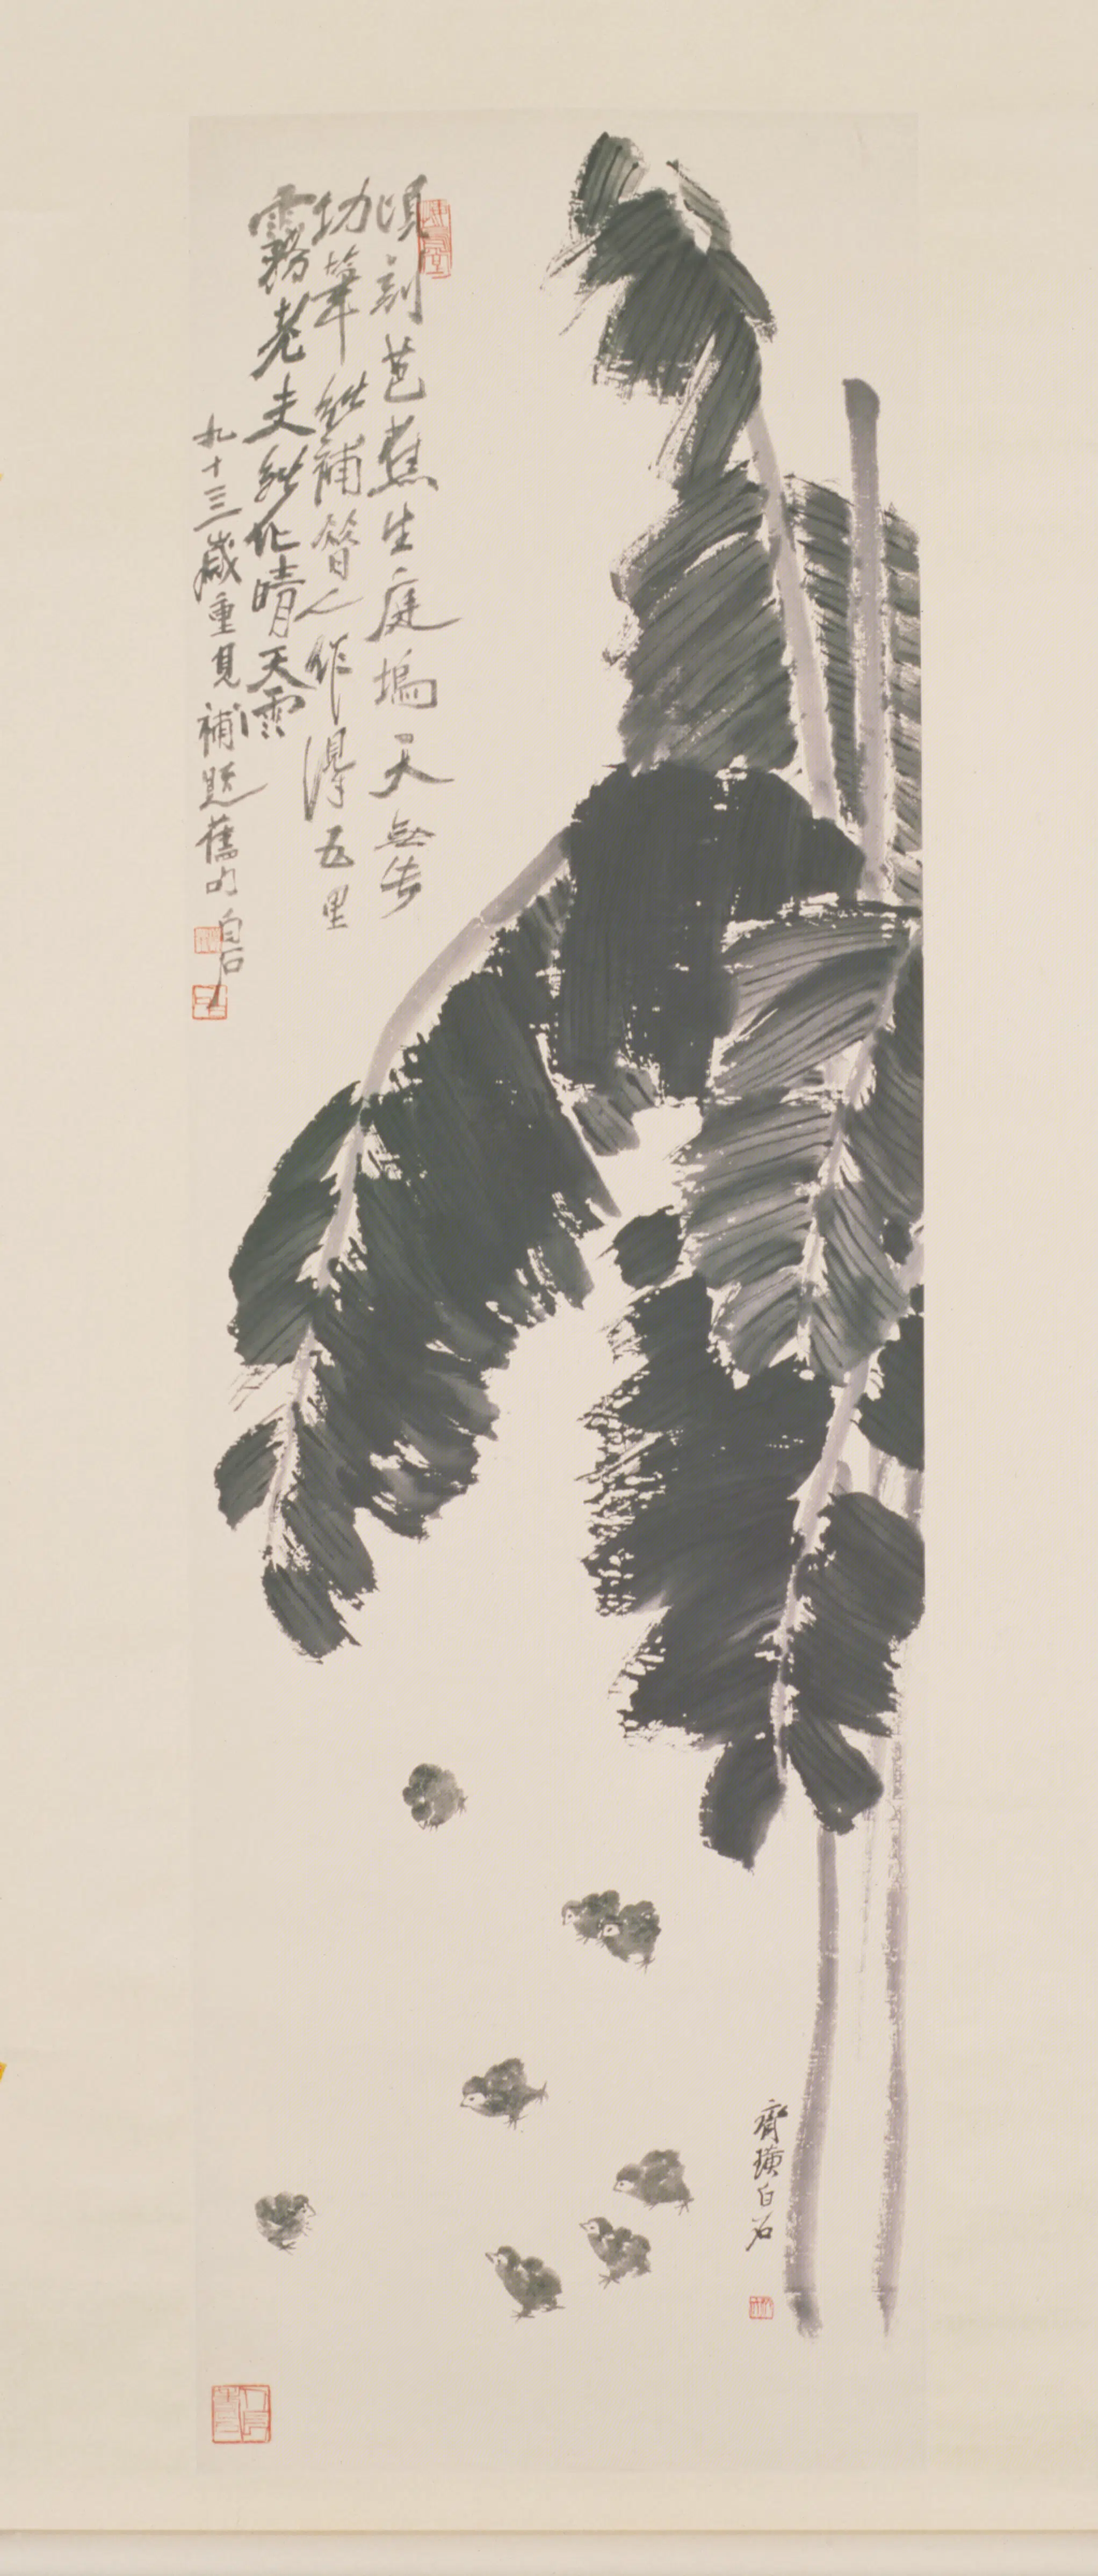 頃刻芭蕉生庭塢天無
功筆能補昔人作得五里
霧老夫能作晴天雨
九十三歲重見補題舊句白石
齊璜白石